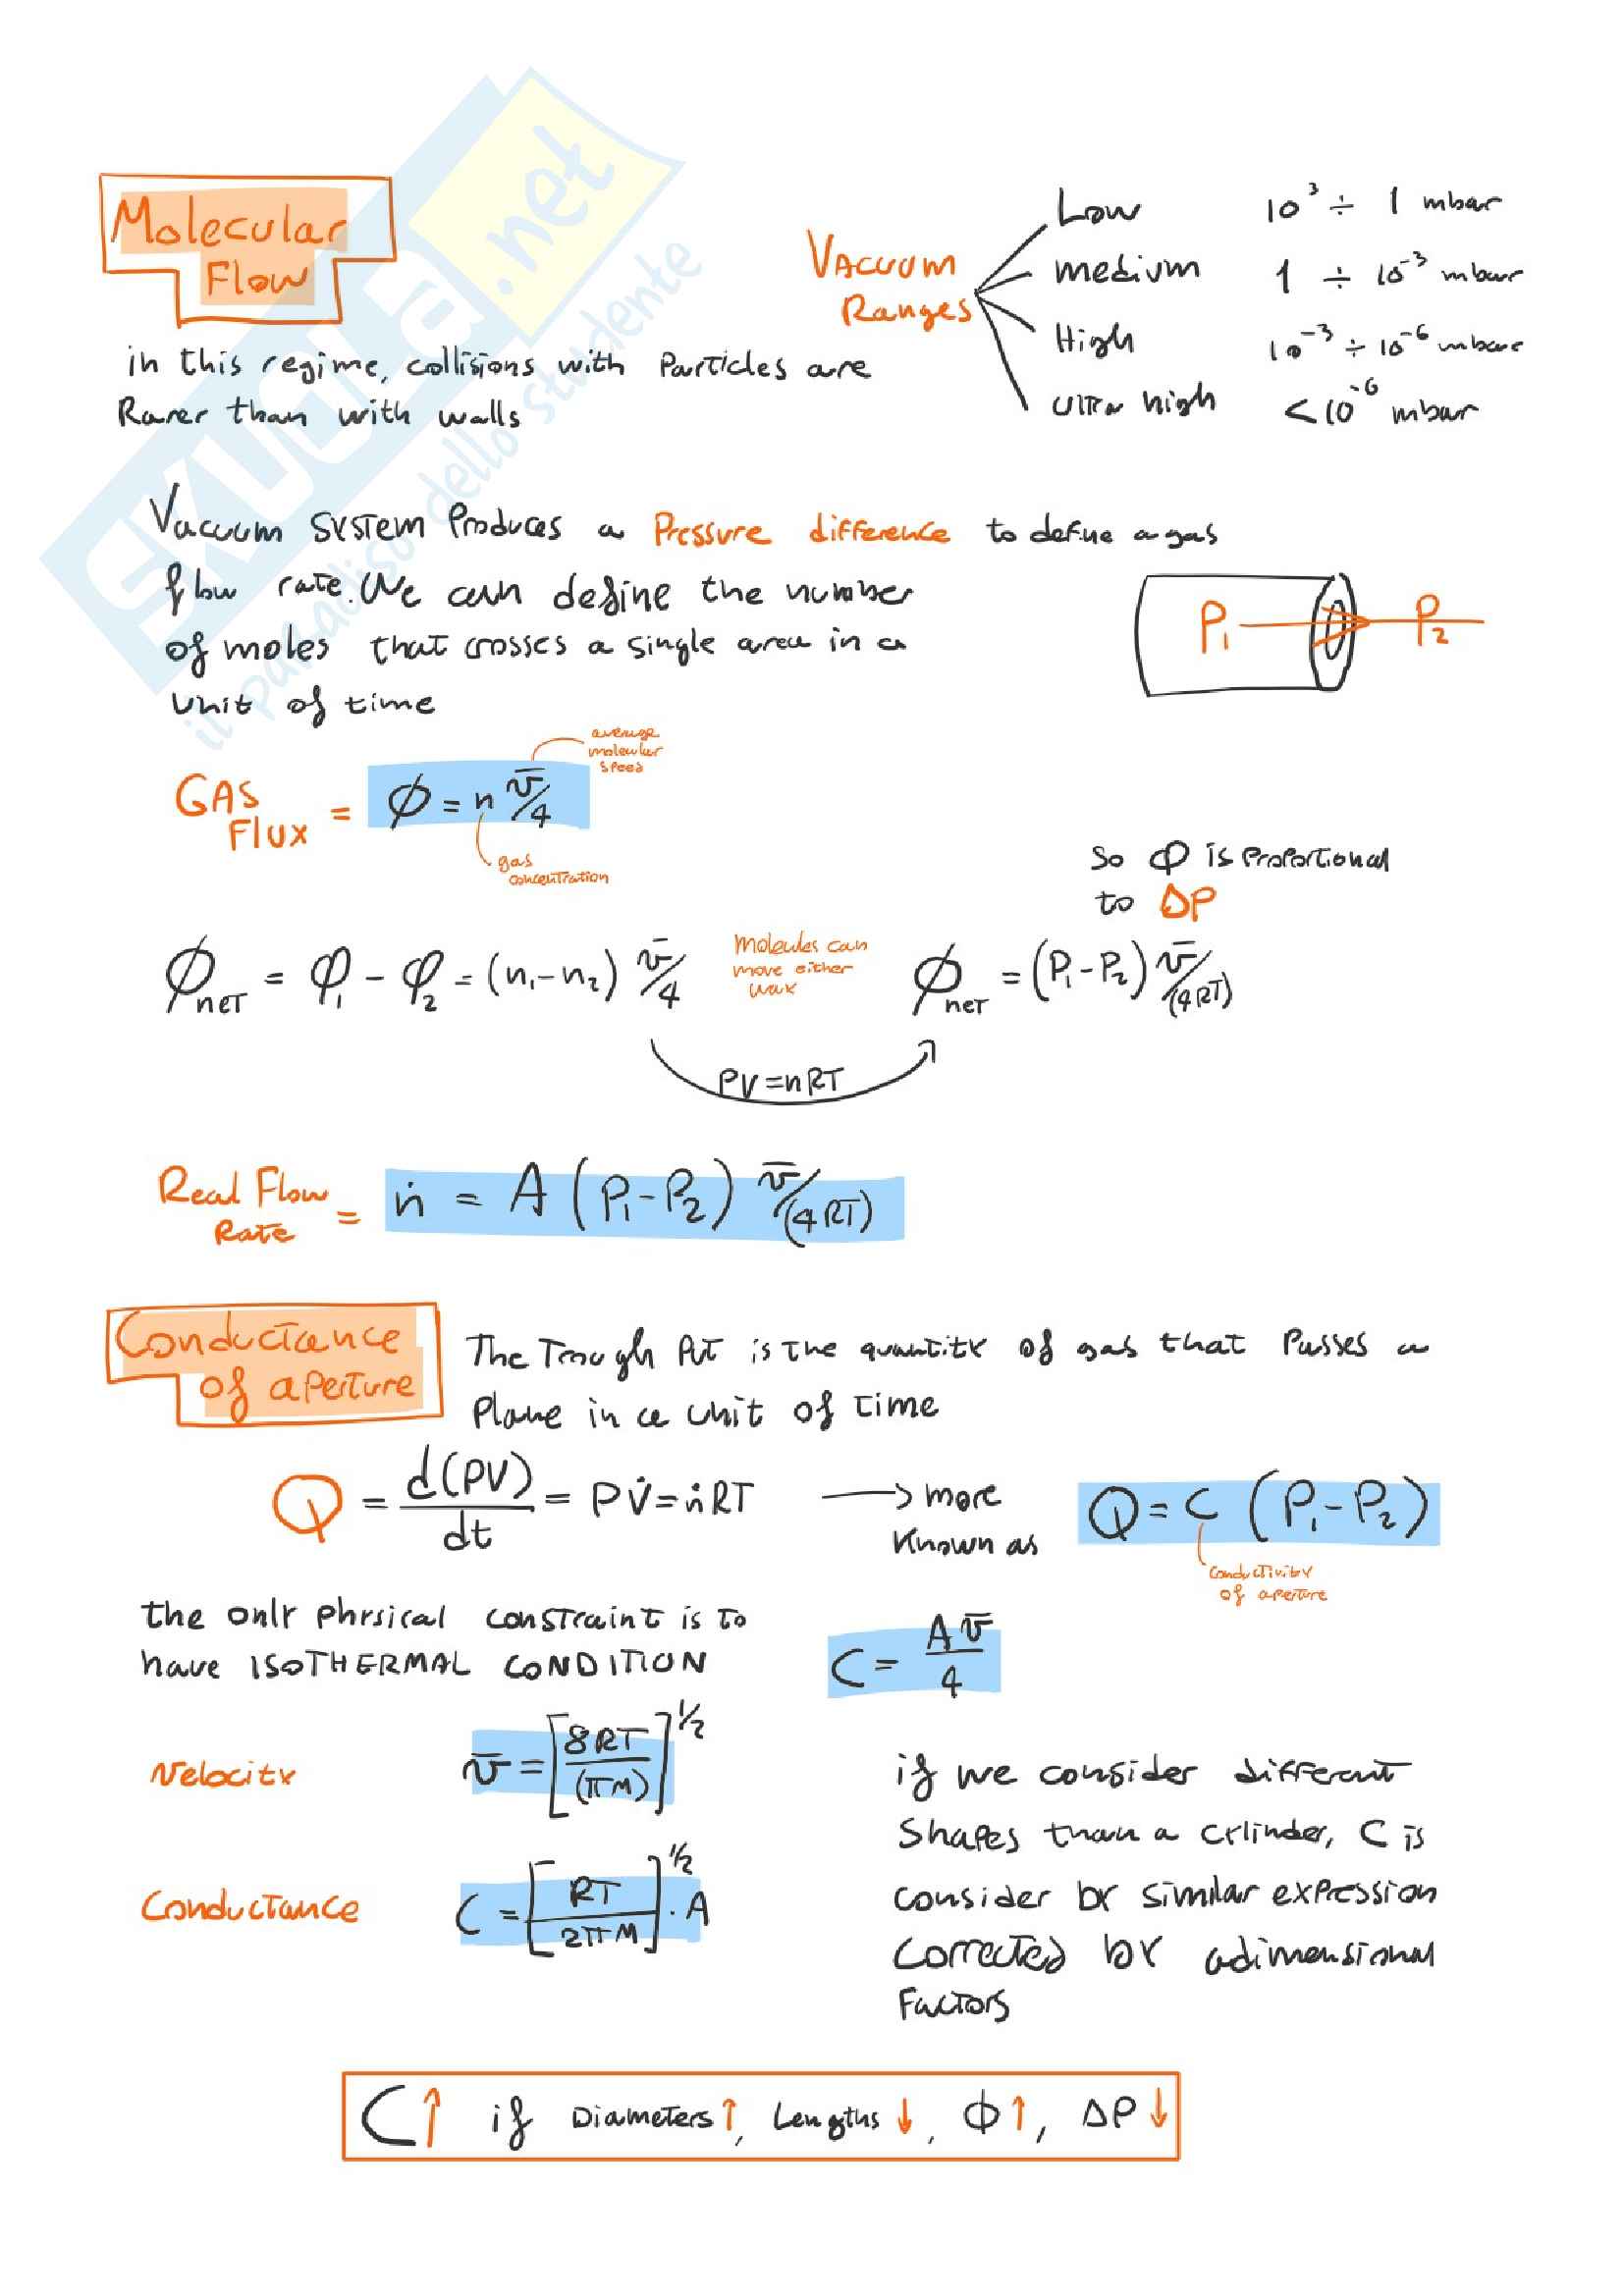 SKUOLA.net
il paradiso dello studente
Molecular
Flow
Vacuum
Ranges
Low 10³ ÷ 1 mbar
medium 1 ÷ 10⁻³ mbar
High 10⁻³ ÷ 10⁻⁶ mbar
Ultra high < 10⁻⁶ mbar
in this regime, collisions with Particles are
Rarer than with walls
Vacuum System Produces a Pressure difference to define a gas
flow rate. We can define the number
of moles that crosses a single area in a
Unit of time
P₁ P₂
average
molecular
speed
GAS
Flux = ϕ = n v̄/4
gas
concentration
So ϕ is Proportional
to ΔP
ϕnet = φ₁ - φ₂ = (n₁-n₂) v̄/4
Molecules can
move either
way
ϕnet = (P₁-P₂) v̄/(4RT)
PV=nRT
Real Flow
Rate = ṅ = A (P₁-P₂) v̄/(4RT)
Conductance
of aperture
The Trough Put is the quantity of gas that Passes a
Plane in a unit of time
Q = d(PV)/dt = PV̇ = ṅRT → more
Known as
Q = C (P₁-P₂)
conductivity
of aperture
the only physical constraint is to
have ISOTHERMAL CONDITION
C = Av̄/4
Velocity v̄ = [8RT/(πM)]^1/2
Conductance C = [RT/2πM]^1/2 · A
if we consider different
Shapes than a cylinder, C is
consider by similar expression
Corrected by adimensional
Factors
C↑ if Diameters↑, Lengths↓, ϕ↑, ΔP↓